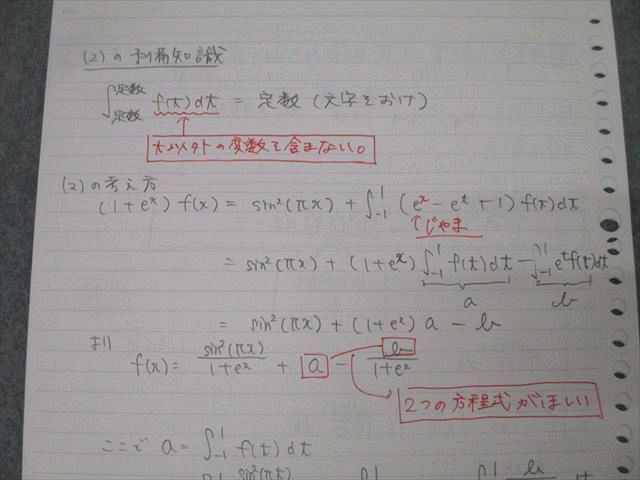 (2) の予備知識
∫定数 定数 f(t)dt = 定数 (文字をおけ)
t以外の変数を含まない。
(2) の考え方
(1+e^x) f(x) = sin²(πx) + ∫_{-1}^{1} (e^x - e^t + 1) f(t)dt
↑じゃま
= sin²(πx) + (1+e^x) ∫_{-1}^{1} f(t)dt - ∫_{-1}^{1} e^t f(t)dt
a b
= sin²(πx) + (1+e^x) a - b
より
f(x) = sin²(πx)/(1+e^x) + a - b/(1+e^x)
2つの方程式がほしい
ここで a = ∫_{-1}^{1} f(t) dt